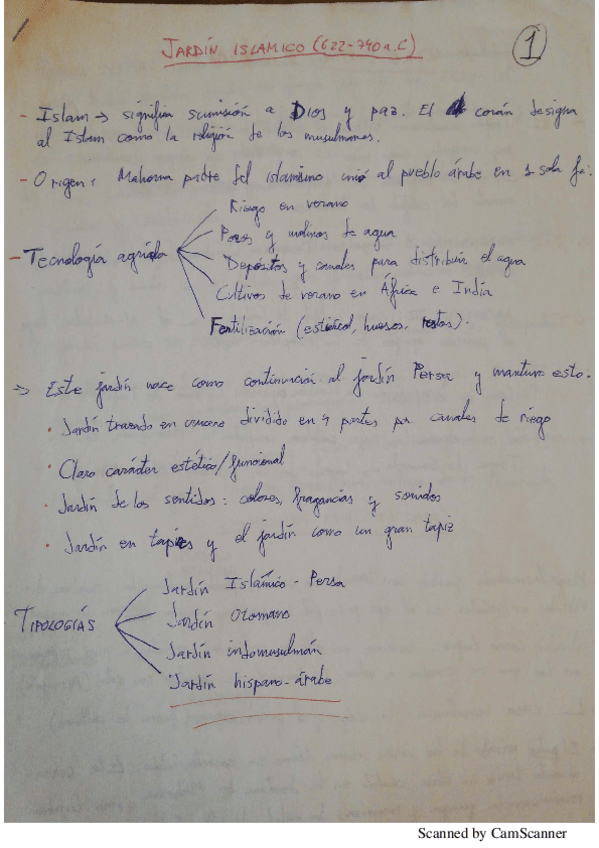 JARDÍN ISLAMICO (622-740 a.C)
1
- Islam → significa sumisión a Dios y paz. El corán designa
al Islam como la religión de los musulmanes.
- Origen: Mahoma padre del islamismo unió al pueblo árabe en 1 sola fe.
- Tecnología agrícola
Riego en verano
Pozos y molinos de agua
Depósitos y canales para distribuir el agua
Cultivos de verano en África e India
Fertilización (estiércol, huesos, restos).
⇒ Este jardín nace como continuación al jardín Persa y mantuvo esto:
• Jardín trazado en crucero dividido en 4 partes por canales de riego
• Claro carácter estético/funcional
• Jardín de los sentidos: colores, fragancias y sonidos
• Jardín en tapices y el jardín como un gran tapiz
TIPOLOGÍAS
Jardín Islámico - Persa
Jardín Otomano
Jardín indomusulmán
Jardín hispano-árabe
Scanned by CamScanner